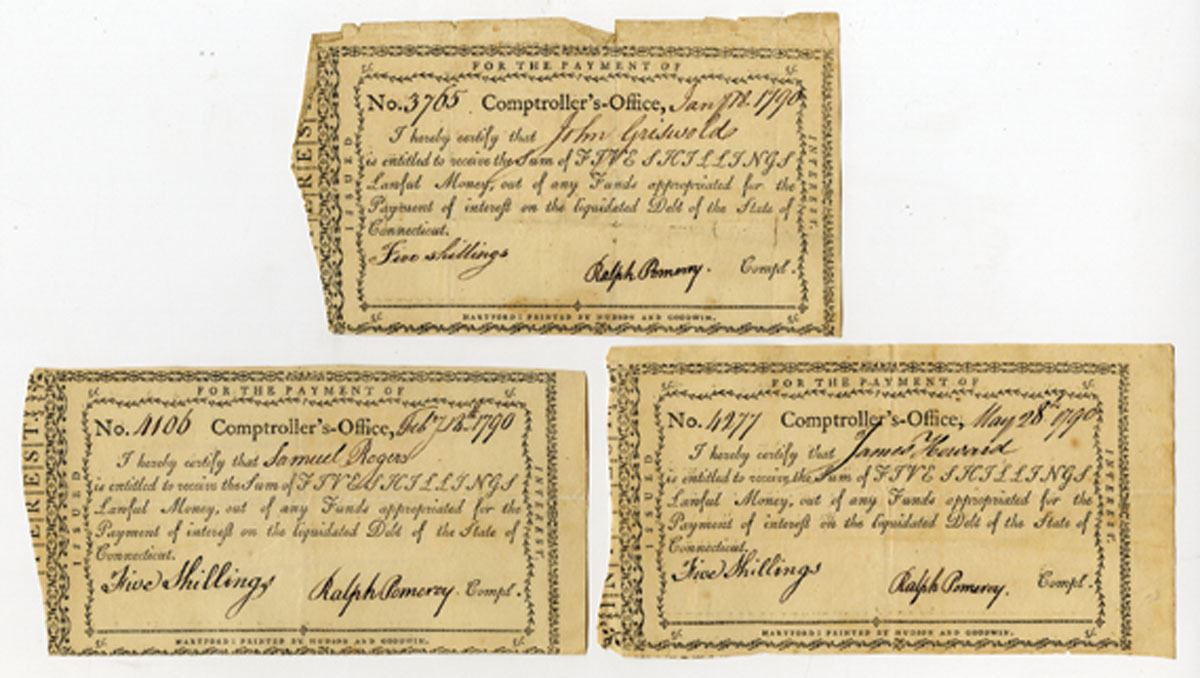 FOR THE PAYMENT OF
No. 3765 Comptroller's-Office, 1790
I hereby certify that John Griswold
is entitled to receive the Sum of FIVE SHILLINGS
Lawful Money, out of any Funds appropriated for the
Payment of interest on the liquidated Debt of the State of
Connecticut.
Five shillings
Ralph Pomeroy. Compt.
HARTFORD: PRINTED BY HUDSON AND GOODWIN.
ISSUED
INTEREST.
FOR THE PAYMENT OF
No. 4106 Comptroller's-Office, Feb 1790
I hereby certify that Samuel Rogers
is entitled to receive the Sum of FIVE SHILLINGS
Lawful Money, out of any Funds appropriated for the
Payment of interest on the liquidated Debt of the State of
Connecticut.
Five Shillings
Ralph Pomeroy. Compt.
HARTFORD: PRINTED BY HUDSON AND GOODWIN.
ISSUED
INTEREST.
FOR THE PAYMENT OF
No. 4277 Comptroller's-Office, May 28th 1790
I hereby certify that James Howard
is entitled to receive the Sum of FIVE SHILLINGS
Lawful Money, out of any Funds appropriated for the
Payment of interest on the liquidated Debt of the State of
Connecticut.
Five Shillings
Ralph Pomeroy. Compt.
HARTFORD: PRINTED BY HUDSON AND GOODWIN.
ISSUED
INTEREST.